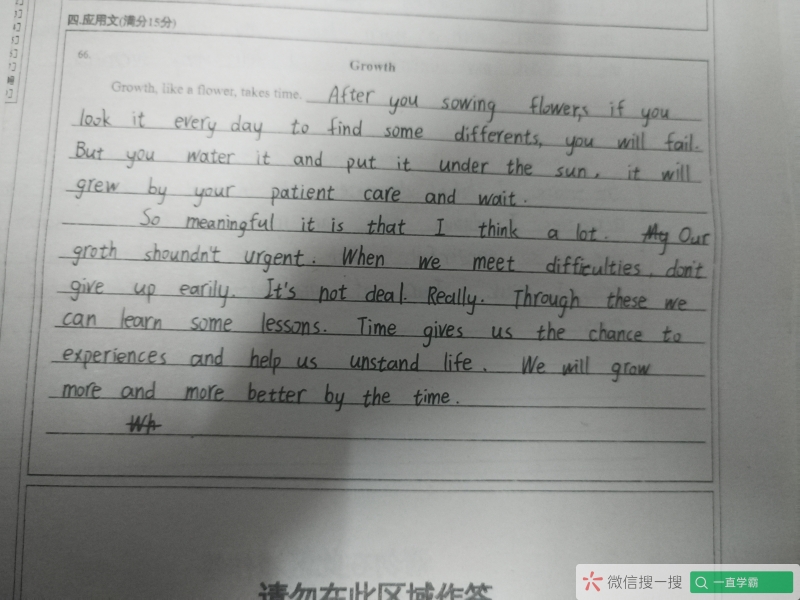 四.应用文(满分15分)
66.
Growth
Growth, like a flower, takes time. After you sowing flowers, if you
look it every day to find some differents, you will fail.
But you water it and put it under the sun, it will
grew by your patient care and wait.
So meaningful it is that I think a lot. My Our
groth shoundn't urgent. When we meet difficulties, don't
give up earily. It's not deal. Really. Through these we
can learn some lessons. Time gives us the chance to
experiences and help us unstand life. We will grow
more and more better by the time.
Wh
请勿在此区域作答
微信搜一搜
一直学霸